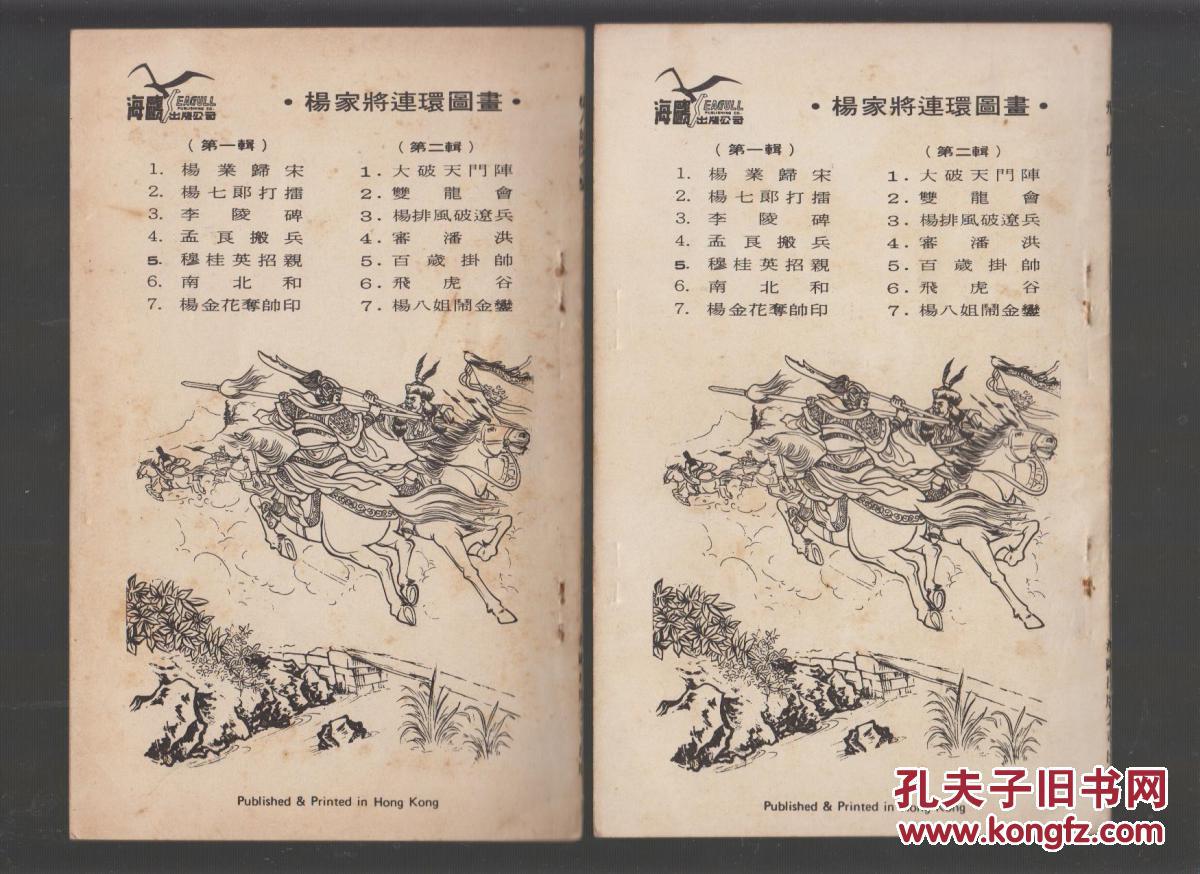 海鷗
SEAGULL
PUBLISHING CO.
出版公司
•楊家將連環圖畫•
(第一輯)
1. 楊業歸宋
2. 楊七郎打擂
3. 李陵碑
4. 孟良搬兵
5. 穆桂英招親
6. 南北和
7. 楊金花奪帥印
(第二輯)
1. 大破天門陣
2. 雙龍會
3. 楊排風破遼兵
4. 審潘洪
5. 百歲掛帥
6. 飛虎谷
7. 楊八姐鬧金鑾
Published & Printed in Hong Kong
海鷗
SEAGULL
PUBLISHING CO.
出版公司
•楊家將連環圖畫•
(第一輯)
1. 楊業歸宋
2. 楊七郎打擂
3. 李陵碑
4. 孟良搬兵
5. 穆桂英招親
6. 南北和
7. 楊金花奪帥印
(第二輯)
1. 大破天門陣
2. 雙龍會
3. 楊排風破遼兵
4. 審潘洪
5. 百歲掛帥
6. 飛虎谷
7. 楊八姐鬧金鑾
Published & Printed in Hong Kong
孔夫子旧书网
www.kongfz.com